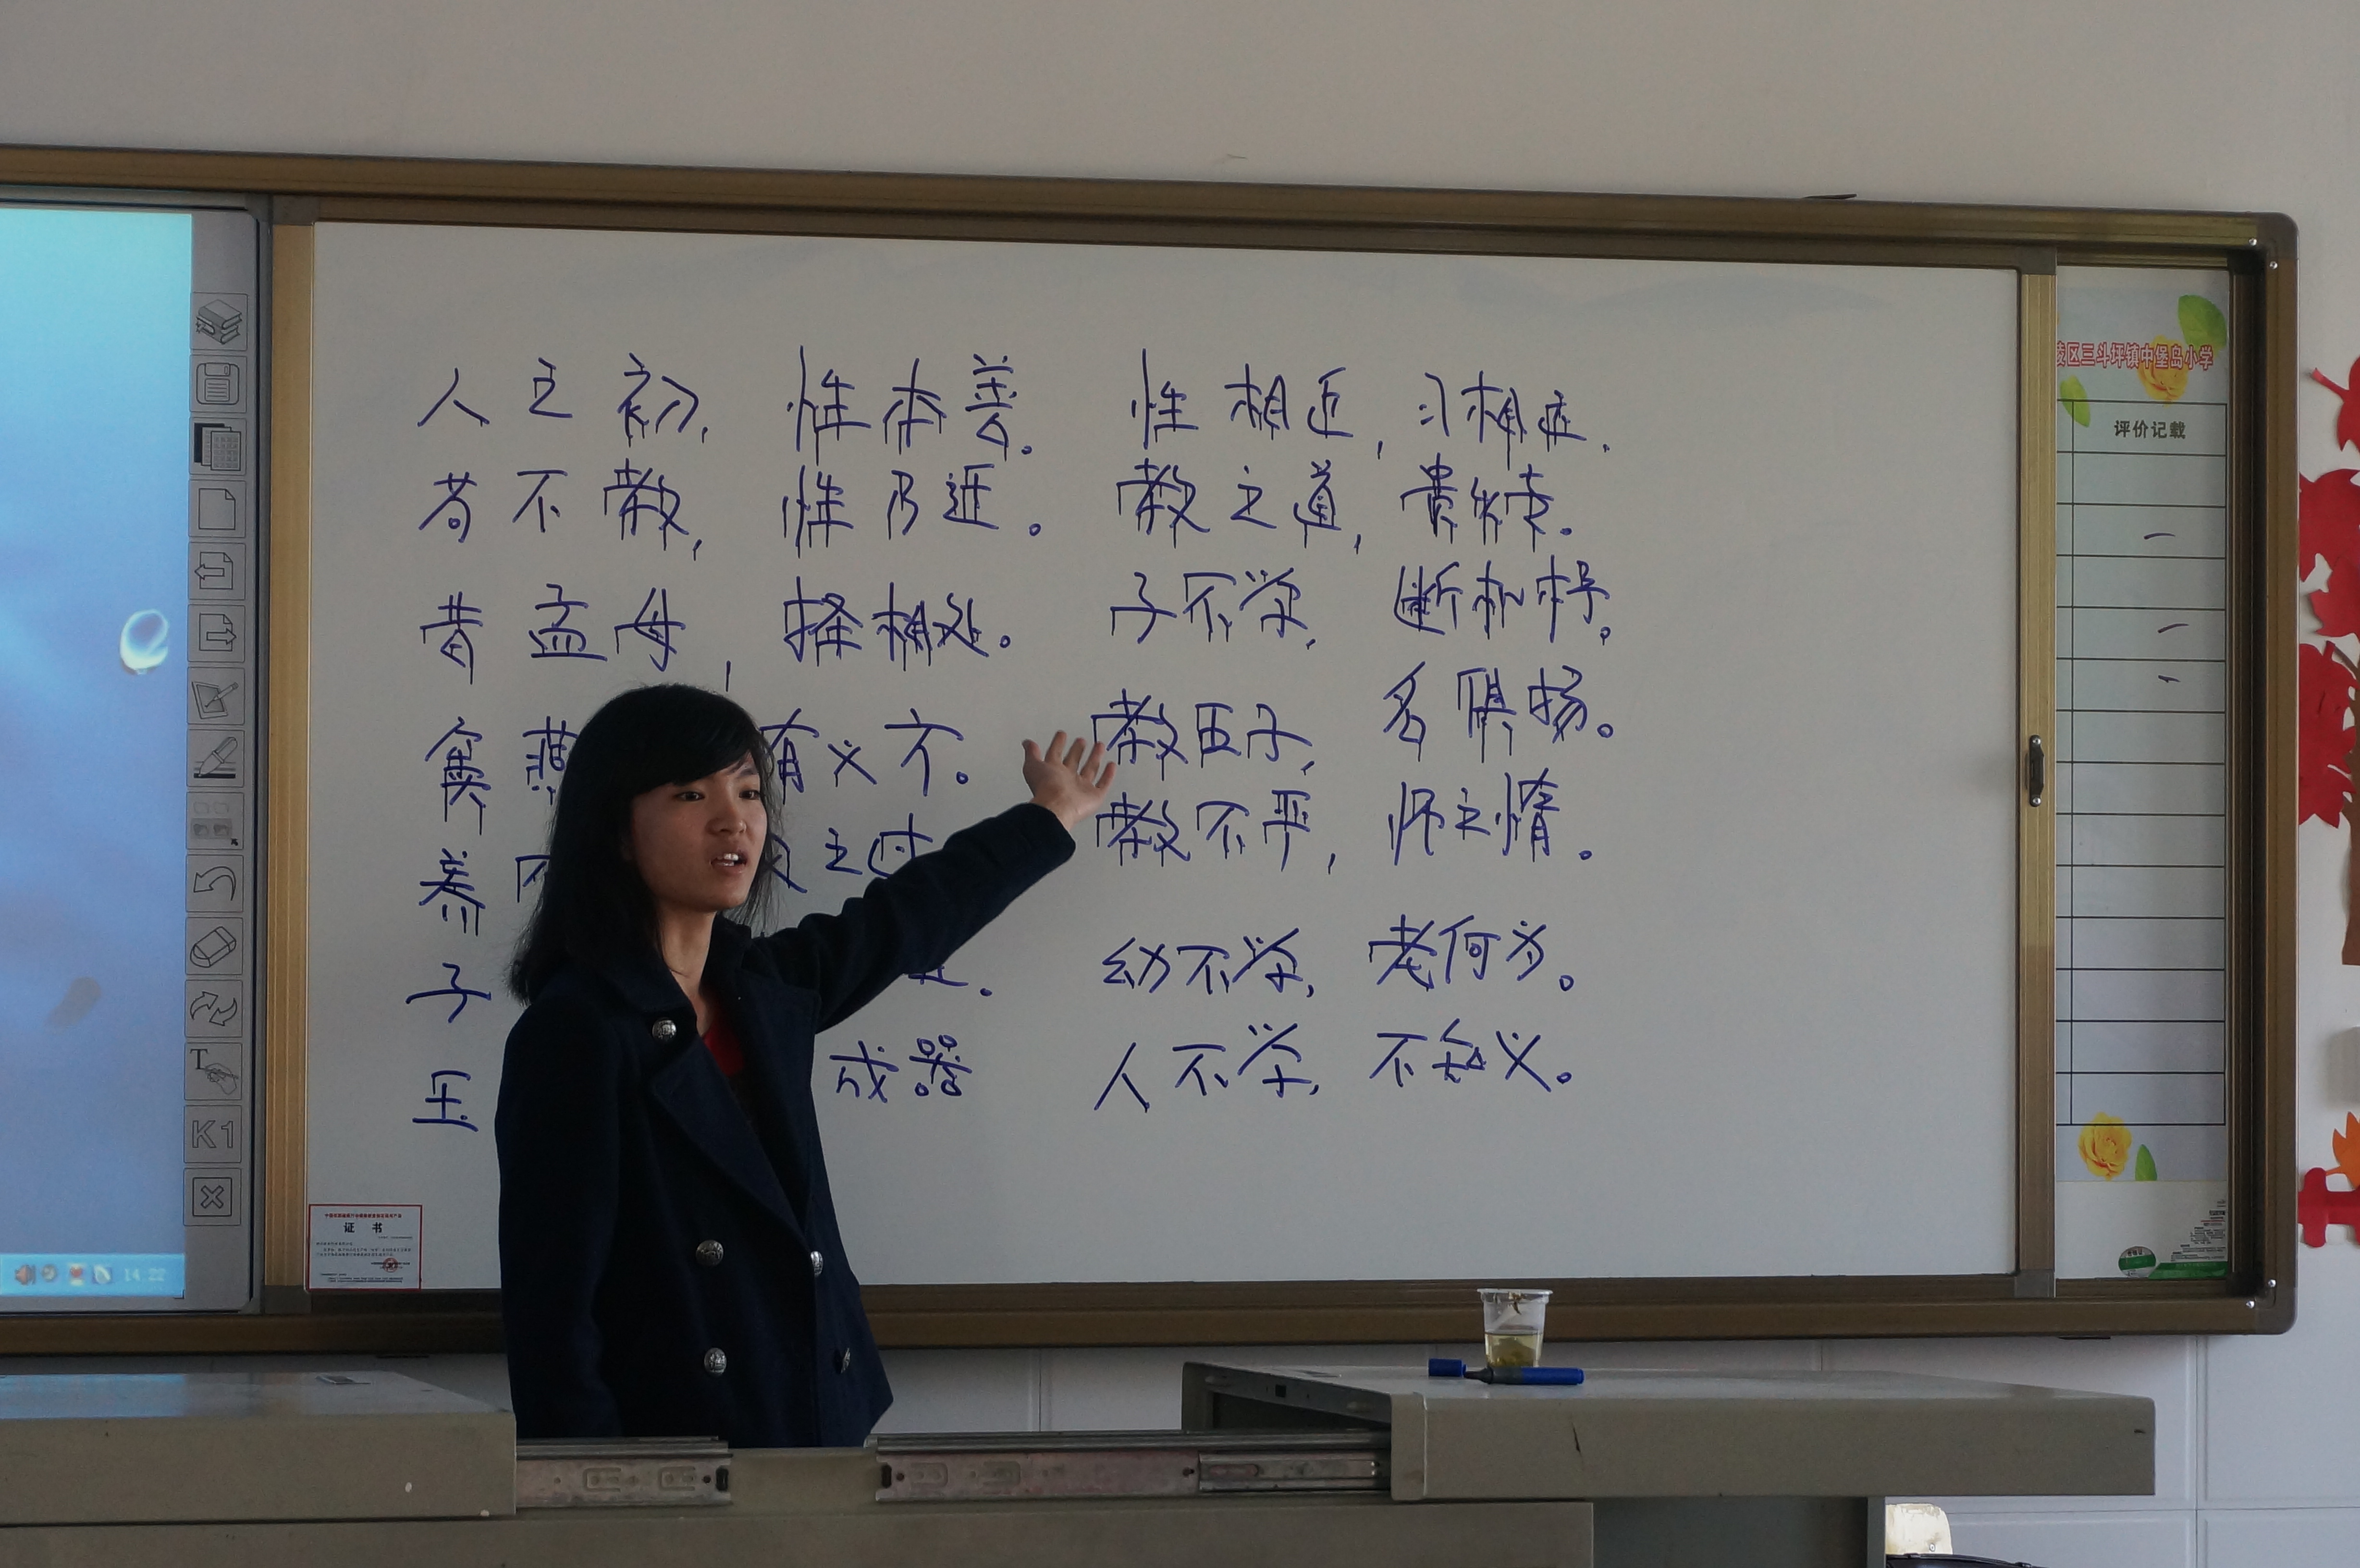 人之初,性本善。 性相近,习相远.
苟不教,性乃迁。 教之道,贵以专。
昔孟母,择相处。 子不学,断机杼。
窦燕 有义方。 教五子,名俱扬。
养不 父之过 教不严,师之惰。
子 幼不学,老何为。
玉 成器 人不学,不知义。
T
K1
14:22
证 书
陵区三斗坪镇中堡岛小学
评价记载